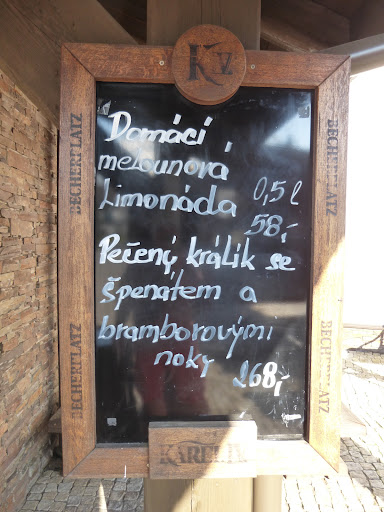 KV
Domácí
melounová
Limonáda 0,5l
58,-
Pečený králík se
špenátem a
bramborovými
noky 268,-
BECHERPLATZ
BECHERPLATZ
BECHERPLATZ
BECHERPLATZ